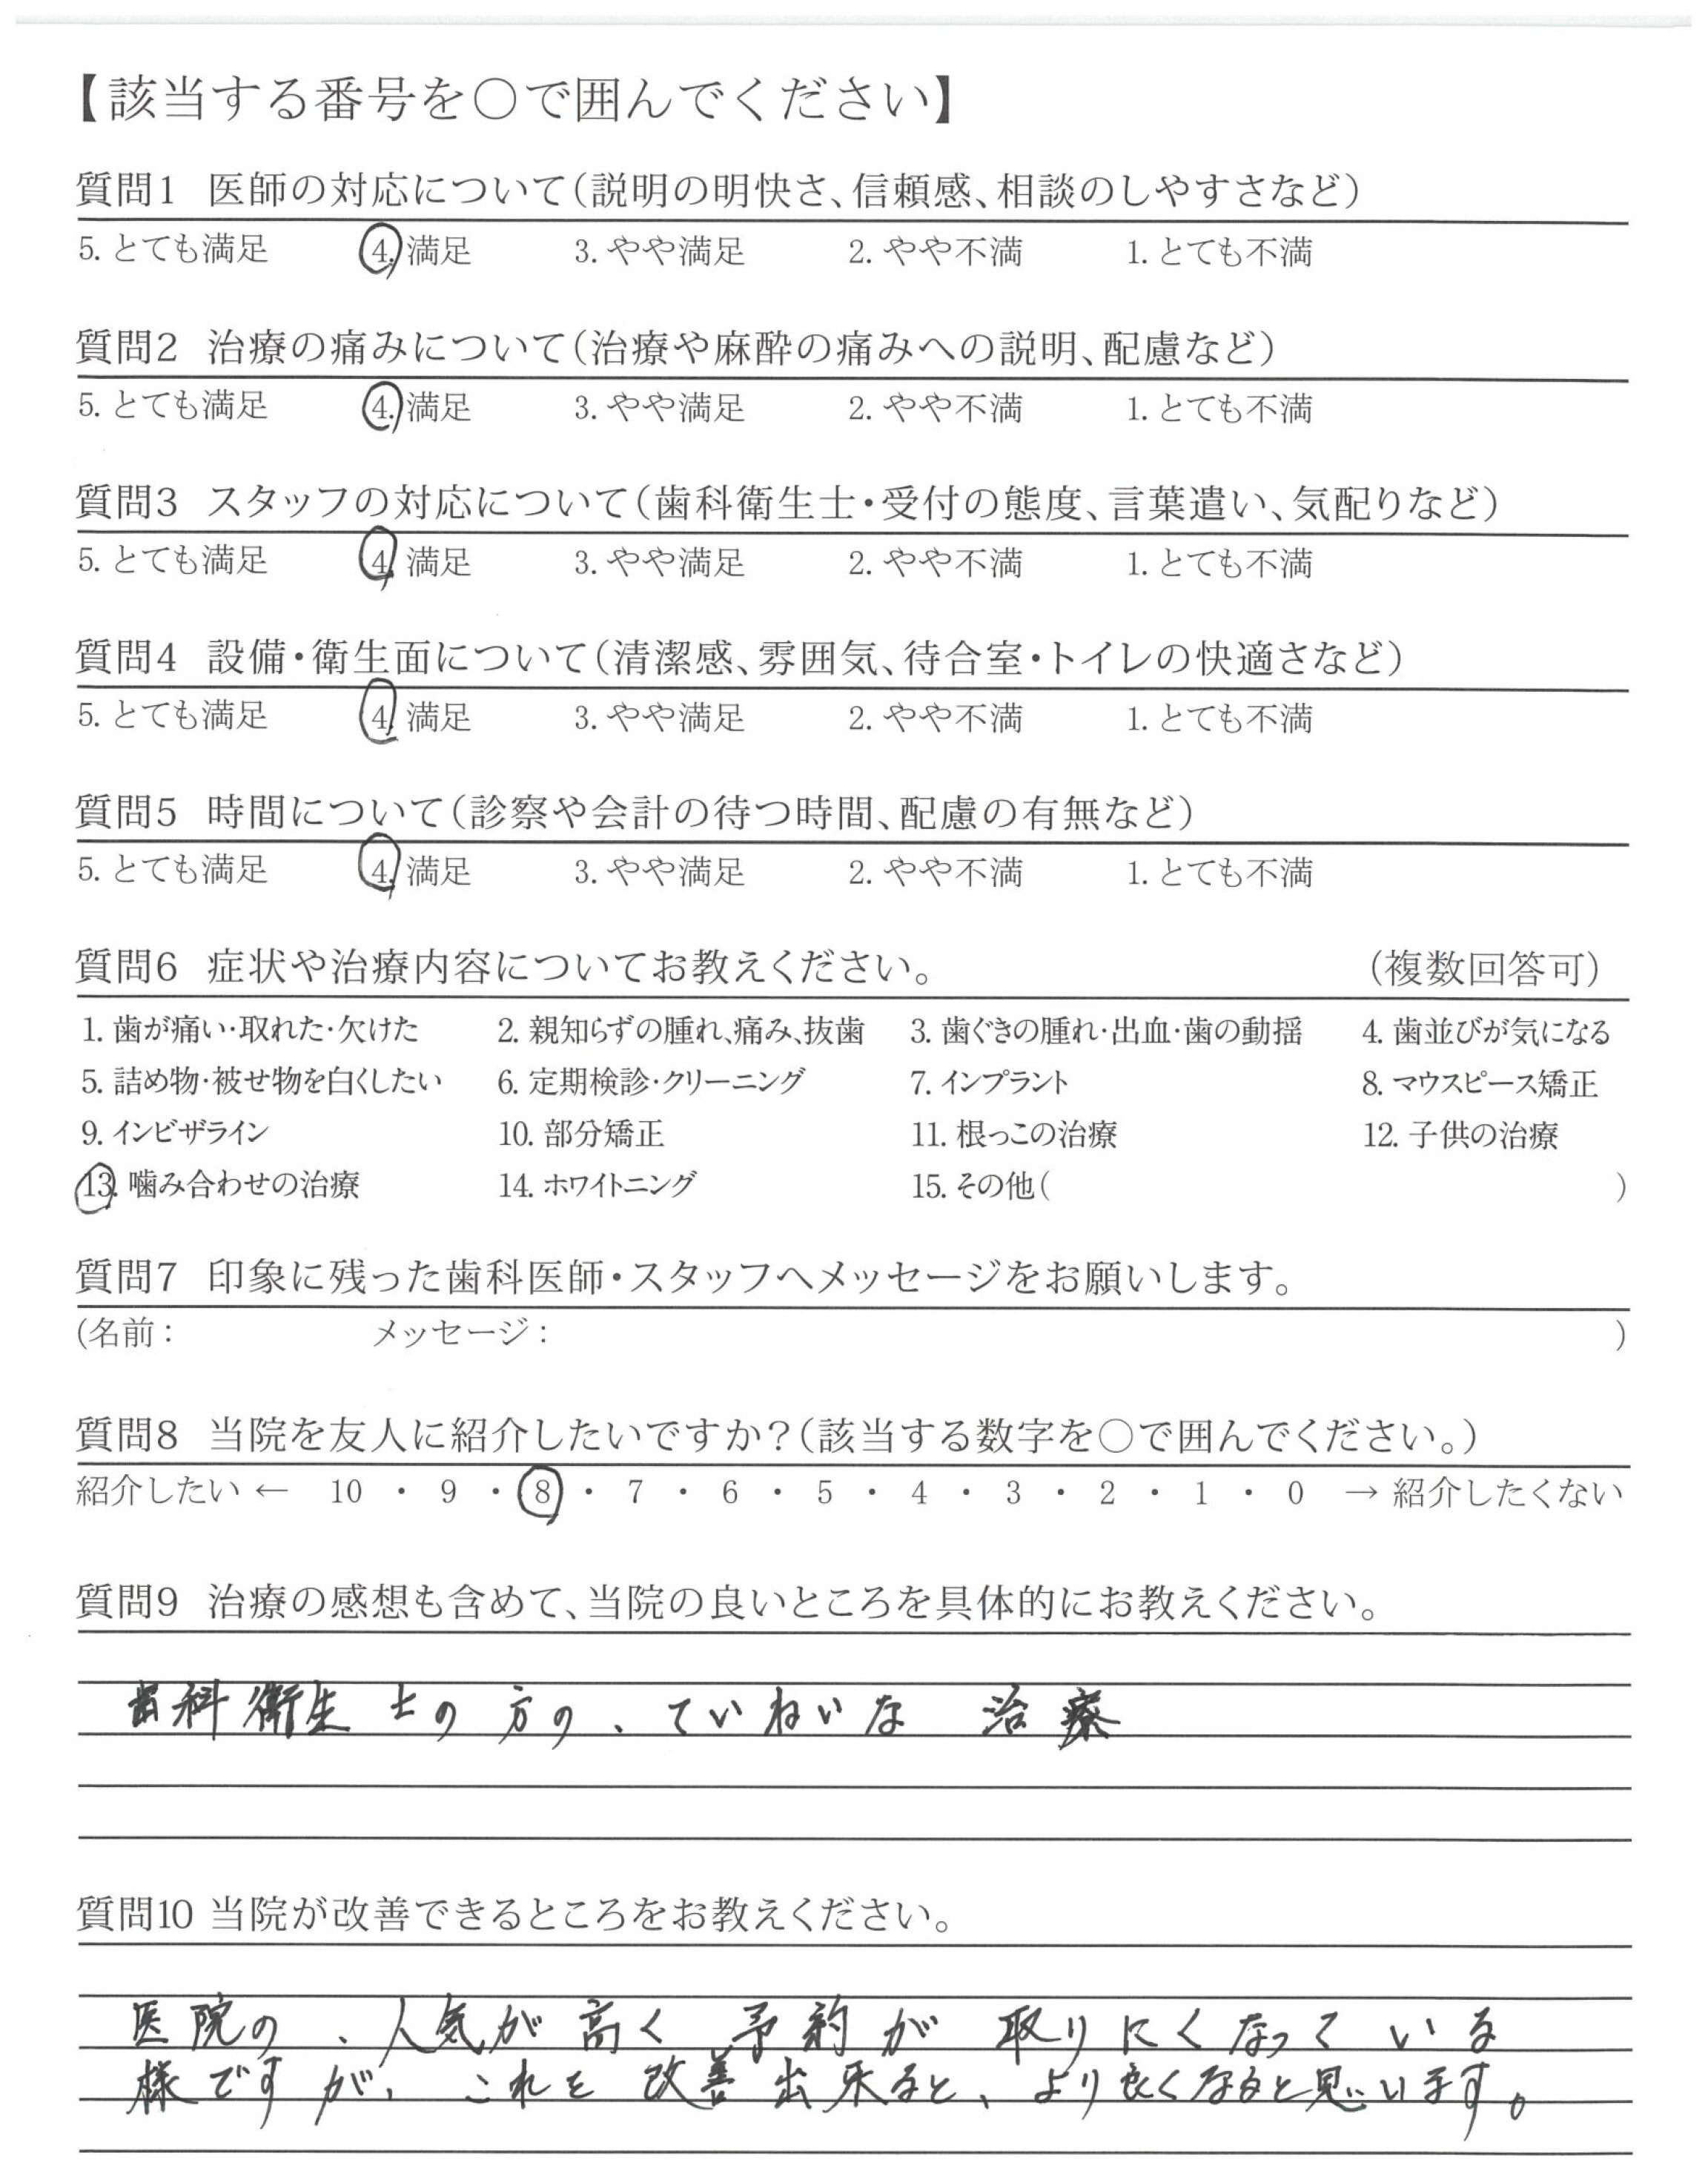 【該当する番号を○で囲んでください】
質問1 医師の対応について(説明の明快さ、信頼感、相談のしやすさなど)
5. とても満足 4. 満足 3. やや満足 2. やや不満 1. とても不満
質問2 治療の痛みについて(治療や麻酔の痛みへの説明、配慮など)
5. とても満足 4. 満足 3. やや満足 2. やや不満 1. とても不満
質問3 スタッフの対応について(歯科衛生士・受付の態度、言葉遣い、気配りなど)
5. とても満足 4. 満足 3. やや満足 2. やや不満 1. とても不満
質問4 設備・衛生面について(清潔感、雰囲気、待合室・トイレの快適さなど)
5. とても満足 4. 満足 3. やや満足 2. やや不満 1. とても不満
質問5 時間について(診察や会計の待つ時間、配慮の有無など)
5. とても満足 4. 満足 3. やや満足 2. やや不満 1. とても不満
質問6 症状や治療内容についてお教えください。 (複数回答可)
1. 歯が痛い・取れた・欠けた 2. 親知らずの腫れ、痛み、抜歯 3. 歯ぐきの腫れ・出血・歯の動揺 4. 歯並びが気になる
5. 詰め物・被せ物を白くしたい 6. 定期検診・クリーニング 7. インプラント 8. マウスピース矯正
9. インビザライン 10. 部分矯正 11. 根っこの治療 12. 子供の治療
13. 噛み合わせの治療 14. ホワイトニング 15. その他( )
質問7 印象に残った歯科医師・スタッフへメッセージをお願いします。
(名前: メッセージ: )
質問8 当院を友人に紹介したいですか?(該当する数字を○で囲んでください。)
紹介したい ← 10 ・ 9 ・ 8 ・ 7 ・ 6 ・ 5 ・ 4 ・ 3 ・ 2 ・ 1 ・ 0 → 紹介したくない
質問9 治療の感想も含めて、当院の良いところを具体的にお教えください。
歯科衛生士の方の、ていねいな 治療
質問10 当院が改善できるところをお教えください。
医院の、人気が高く 予約が 取りにくくなっている
様ですが、これを 改善出来ると、より良くなると思います。